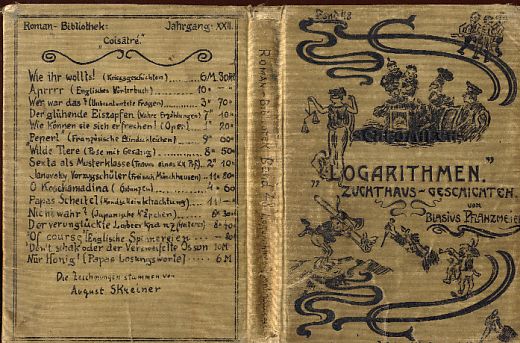 Roman-Bibliothek: Jahrgang: XXII.
"Coisatré."
Wie ihr wollts! (Kriegsgeschichten) 6M 30
Aprrr (Englisches Wörterbuch) 10
Wer war das? (Unbeantwortete Fragen) 3 70
Der glühende Eiszapfen (Wahre Erzählungen) 7 10
Wie können sie sich erfrechen! (Oper) 1 20
Peperl (Französische Eindruckleichen) 9 00
Wilde Tiere (Pose mit Gesang) 8 50
Sexta als Musterklasse (Traum eines KK) 2 10
Janovsky Vorzugsschüler (Frei nach Münchhausen) 11 80
O Koschamadina 4 60
Papas Scheitel 11
Nichowahr? (Japanische) 6 30
Der verunglückte Lorbeerkranz
Of course Englische Spinnereien
Don't schak oder der Verzweifelte Osson 10M
Nur Honig! (Papas Losungsworte) 6M
Die Zeichnungen stammen von
August Skreiner
Roman-Bibliothek Band
"LOGARITHMEN."
ZUCKTHAUS-GESCHICHTEN.
VON
BLASIUS PFANZMEIER